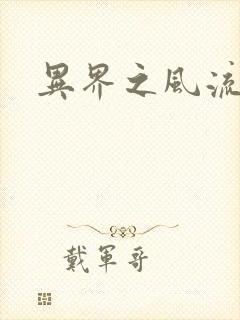 異界之風流
戴軍哥